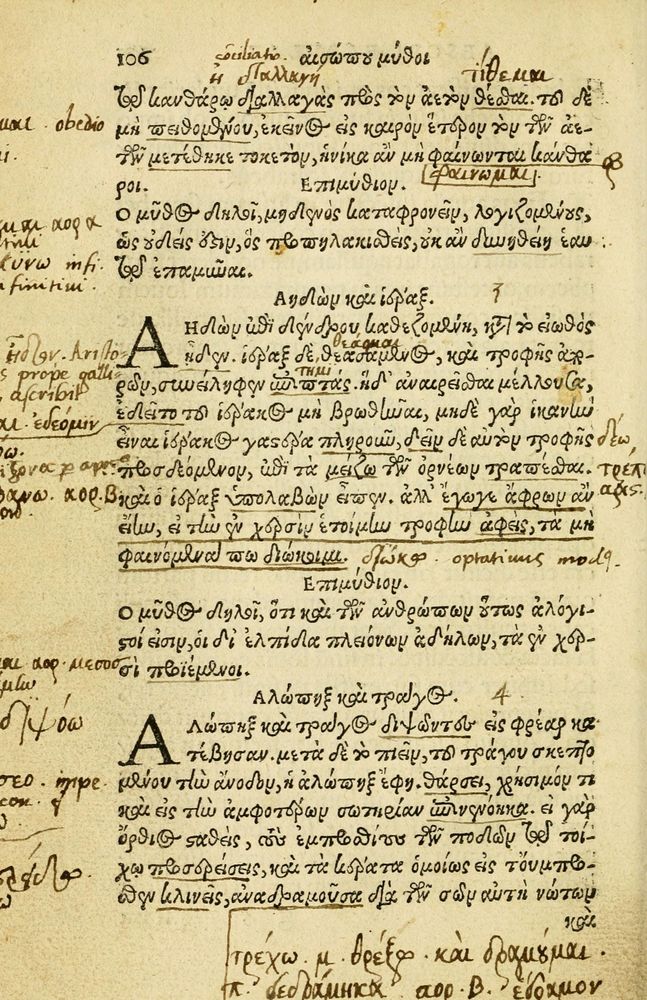 106 αἰσώπου μύθοι
ἡ διαλλαγὴ τίθεμαι
τῷ κανθάρῳ διαλλαγὰς πρὸς τὸν ἀετὸν θέσθαι. τοῦ δὲ
μὴ πειθομένου, ἐκεῖνος εἰς καιρὸν ἕτερον τὸν τῶν ἀε-
τῶν μετέθηκε τοκετὸν, ἡνίκα ἂν μὴ φαίνωνται κάνθα
φαίνωμαι
ροι. Επιμύθιον.
Ο μῦθος δηλοῖ, μηδενὸς καταφρονεῖν, λογιζομένους,
ὡς οὐδείς ἐστιν, ὃς προπηλακισθεὶς, οὐκ ἂν δυνηθείη ἑαυ
τῷ ἐπαμῦναι.
Αηδὼν καὶ ἱέραξ. 3
ΑΗδὼν ἐπὶ δένδρου καθεζομένη, κατὰ τὸ εἰωθὸς
ᾖδεν. ἱέραξ δὲ θεασάμενος, καὶ τροφῆς ἀπο-
ρῶν, συνείληφεν ἐπιπτάς. ἡ δ' ἀναιρεῖσθαι μέλλουσα,
ἐδεῖτο τοῦ ἱέρακος μὴ βρωθῆναι, μηδὲ γὰρ ἱκανὴν
εἶναι ἱέρακος γαστέρα πληροῦν, δεῖν δὲ αὐτὸν τροφῆς
προσδεόμενον, ἐπὶ τὰ μείζω τῶν ὀρνέων τραπέσθαι.
καὶ ὁ ἱέραξ ὑπολαβὼν εἶπεν. ἀλλ' ἔγωγε ἄφρων ἂν
εἴην, εἰ τὴν ἐν χερσὶν ἑτοίμην τροφὴν ἀφεὶς, τὰ μὴ
φαινόμενά πω διώκοιμι. διώκω optativus mod9.
Επιμύθιον.
Ο μῦθος δηλοῖ, ὅτι καὶ τῶν ἀνθρώπων οὕτως ἀλόγι-
στοί εἰσιν, οἱ δι' ἐλπίδα πλειόνων ἀδήλων, τὰ ἐν χερ-
σὶ προϊέμενοι.
Αλώπηξ καὶ τράγος. 4
ΑΛώπηξ καὶ τράγος διψῶντες εἰς φρέαρ κα
τέβησαν. μετὰ δὲ τὸ πιεῖν, τοῦ τράγου σκεπτο
μένου τὴν ἄνοδον, ἡ ἀλώπηξ ἔφη. θάρσει, χρήσιμόν τι
καὶ εἰς τὴν ἀμφοτέρων σωτηρίαν ἐπινενόηκα. εἰ γὰρ
ὄρθιος σταθεὶς, τοὺς ἐμπροσθίους τῶν ποδῶν τῷ τοί-
χῳ προσερείσεις, καὶ τὰ κέρατα ὁμοίως εἰς τοὔμπρο-
σθεν κλινεῖς, ἀναδραμοῦσα διὰ τῶν σῶν αὐτὴ νώτων
καὶ
τρέχω. μ. θρέξω. καὶ δραμοῦμαι.
π. δεδράμηκα αορ. Β. ἔδραμον